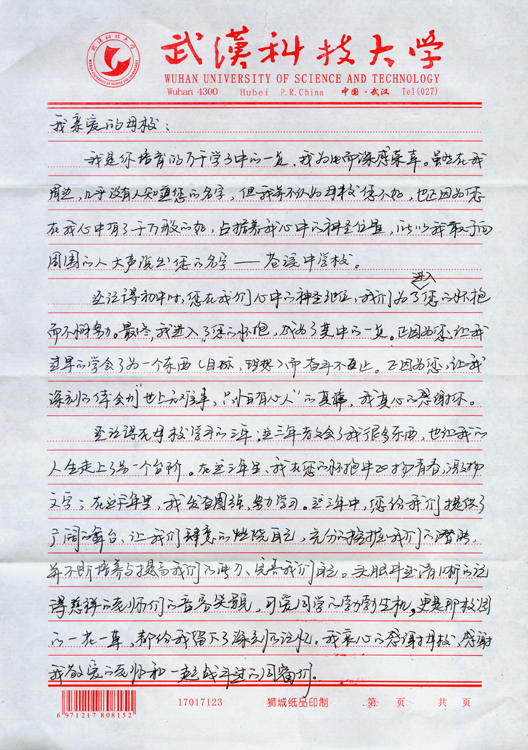 武漢科技大学
WUHAN UNIVERSITY OF SCIENCE AND TECHNOLOGY
Wuhan 4300 Hubei P.R.China 中国·武汉 Tel(027)
我亲爱的母校：
我是你培育的万千学子中的一员，我为此而深感荣幸。虽然在我
周边，几乎没有人知道您的名字，但我并不认为母校您不好，也正因为您
在我心中有了千万般的好，占据着我心中的神圣位置，所以我敢于向
周围的人大声说出您的名字——苍溪中学校。
还记得初中时，您在我们心中的神圣地位，我们为了进入您的怀抱
而不懈努力。最终，我进入了您的怀抱，成为了其中的一员。正因为您，让我
过早的学会了为一个东西（目标，理想）而奋斗不止。正因为您，让我
深刻的体会到“世上无难事，只怕有心人”的真谛，我真心的感谢你。
还记得在母校学习的三年；这三年教会了我很多东西，也让我的
人生走上了另一个台阶。在这三年里，我在您的怀抱中挥扬青春，激扬
文字；在这三年里，我发奋图强，努力学习。这三年中，您给我们提供了
广阔的舞台、让我们肆意的燃烧自己，充分的挖掘我们的潜能，
并不断培养与提高我们的能力、完善我们自己。关眼耳还清晰的记
得慈祥的老师们的音容笑貌，可爱同学的勃勃生机。更是那校园
的一花一草，都给我留下了深刻的记忆。我衷心的感谢母校，感谢
我敬爱的老师和一起战斗过的同窗们。
6 971217 808152
17017123 狮城纸品印制 第 页 共 页